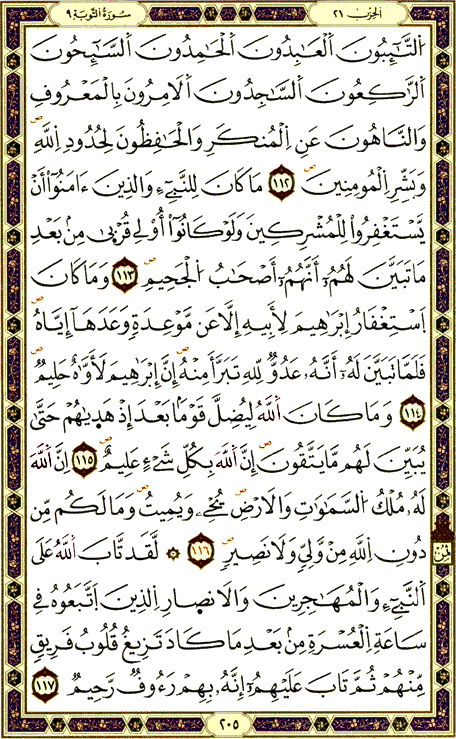 الحزب ٢١
سورة التوبة ٩
اَ۬لتَّٰٓئِبُونَ اَ۬لْعَٰبِدُونَ اَ۬لْحَٰمِدُونَ اَ۬لسَّٰٓئِحُونَ
اَ۬لرَّٰكِعُونَ اَ۬لسَّٰجِدُونَ اَ۬لَامِرُونَ بِالْمَعْرُوفِ
وَالنَّاهُونَ عَنِ اِ۬لْمُنكَرِ وَالْحَٰفِظُونَ لِحُدُودِ اِ۬للَّهِ
وَبَشِّرِ اِ۬لْمُومِنِينَ ١١٢ مَا كَانَ لِلنَّبِےٓءِ وَالذِينَ ءَامَنُوٓاْ أَنْ
يَّسْتَغْفِرُواْ لِلْمُشْرِكِينَ وَلَوْ كَانُوٓاْ أُوْلِے قُرْبٰى مِنۢ بَعْدِ
مَا تَبَيَّنَ لَهُمُۥٓ أَنَّهُمُۥٓ أَصْحَٰبُ اُ۬لْجَحِيمِ ١١٣ وَمَا كَانَ
اَ۪سْتِغْفَارُ إِبْرَٰهِيمَ لِأَبِيهِ إِلَّا عَن مَّوْعِدَةٍ وَعَدَهَآ إِيَّاهُ
فَلَمَّا تَبَيَّنَ لَهُۥٓ أَنَّهُۥ عَدُوٌّ لِلهِ تَبَرَّأَ مِنْهُ إِنَّ إِبْرَٰهِيمَ لَأَوَّٰهٌ حَلِيمٌ
١١٤ وَمَا كَانَ اَ۬للَّهُ لِيُضِلَّ قَوْمَاۢ بَعْدَ إِذْ هَدٜيٰهُمْ حَتَّىٰ
يُبَيِّنَ لَهُم مَّا يَتَّقُونَ إِنَّ اَ۬للَّهَ بِكُلِّ شَےْءٍ عَلِيمٌ ١١٥ إِنَّ اَ۬للَّهَ
لَهُۥ مُلْكُ اُ۬لسَّمَٰوَٰتِ وَالَارْضِ يُحْےِۦ وَيُمِيتُ وَمَا لَكُم مِّن
دُونِ اِ۬للَّهِ مِنْ وَّلِيٍّ وَلَا نَصِيرٍ ١١٦ ۞ لَّقَد تَّابَ اَ۬للَّهُ عَلَى
اَ۬لنَّبِےٓءِ وَالْمُهَٰجِرِينَ وَالَانصِارِ اِ۬لذِينَ اَ۪تَّبَعُوهُ فِے
سَاعَةِ اِ۬لْعُسْرَةِ مِنۢ بَعْدِ مَا كَادَ تَزِيغُ قُلُوبُ فَرِيقٍ
مِّنْهُمْ ثُمَّ تَابَ عَلَيْهِمُۥٓ إِنَّهُۥ بِهِمْ رَءُوفٌ رَّحِيمٌ ١١٧
٢٠٥